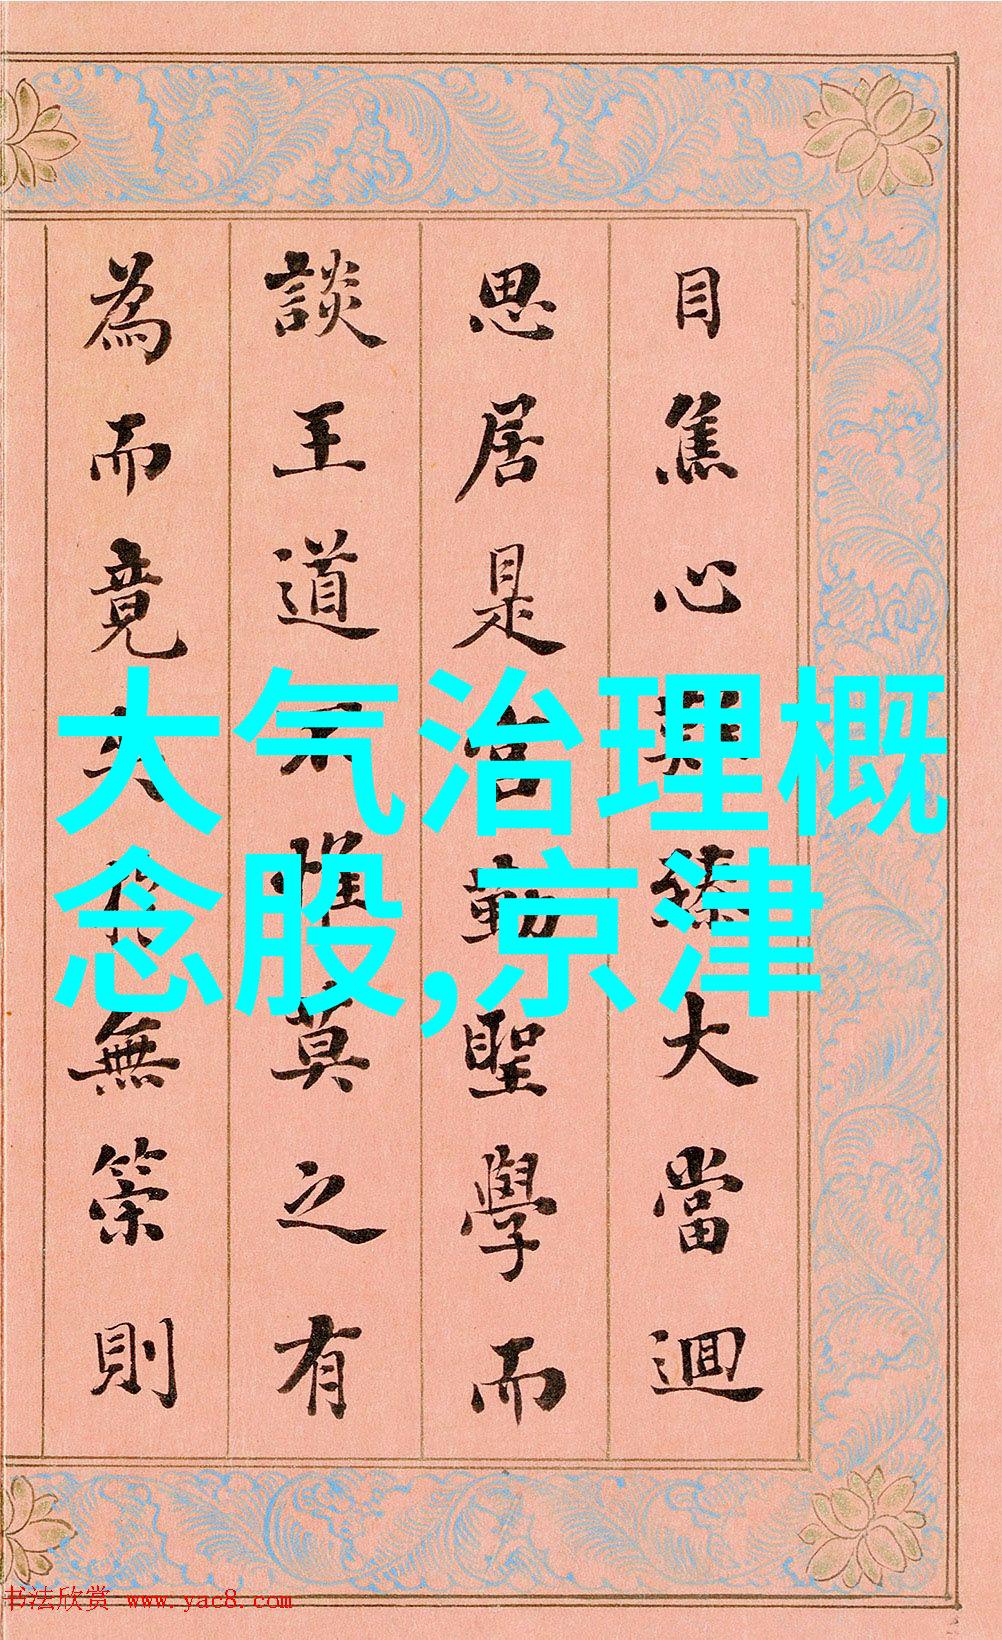 目焦心臻大當迴
思居是宫勤聖學而
談王道不惟莫之有
為而竟無策則
大气治理概
念股,京津
书法欣赏 www.yac8.com